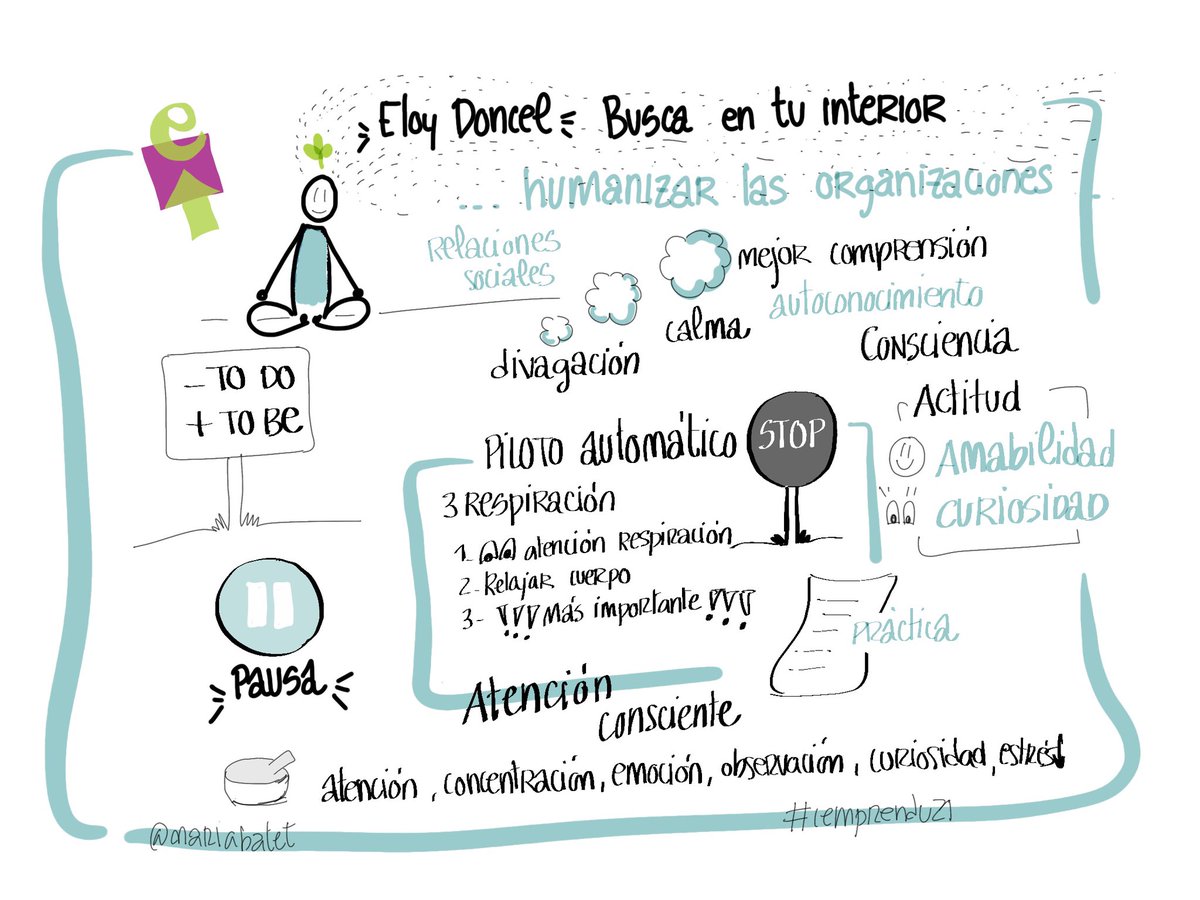 e
Eloy Doncel Busca en tu interior
... humanizar las organizaciones ...
Relaciones
sociales
mejor comprensión
autoconocimiento
calma
Consciencia
divagación
- TO DO
+ TO BE
Actitud
Amabilidad
Curiosidad
Piloto automático
STOP
3 Respiración
1- atención Respiración
2- Relajar cuerpo
3- !!! Más importante !!!
Práctica
Pausa
Atención
consciente
atención, concentración, emoción, observación, curiosidad, estrés↓
@mariabatet